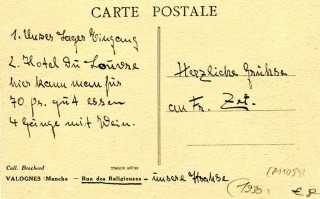 CARTE POSTALE
1. Unser Lager Eingang
2. Hotel du Louvre
hier kann man für
70 pf. gut essen
4 Gänge mit Wein.
Herzliche Grüße
an Fr.
Coll. Brochard
VALOGNES (Manche) — Rue des Religieuses — unsere Straße